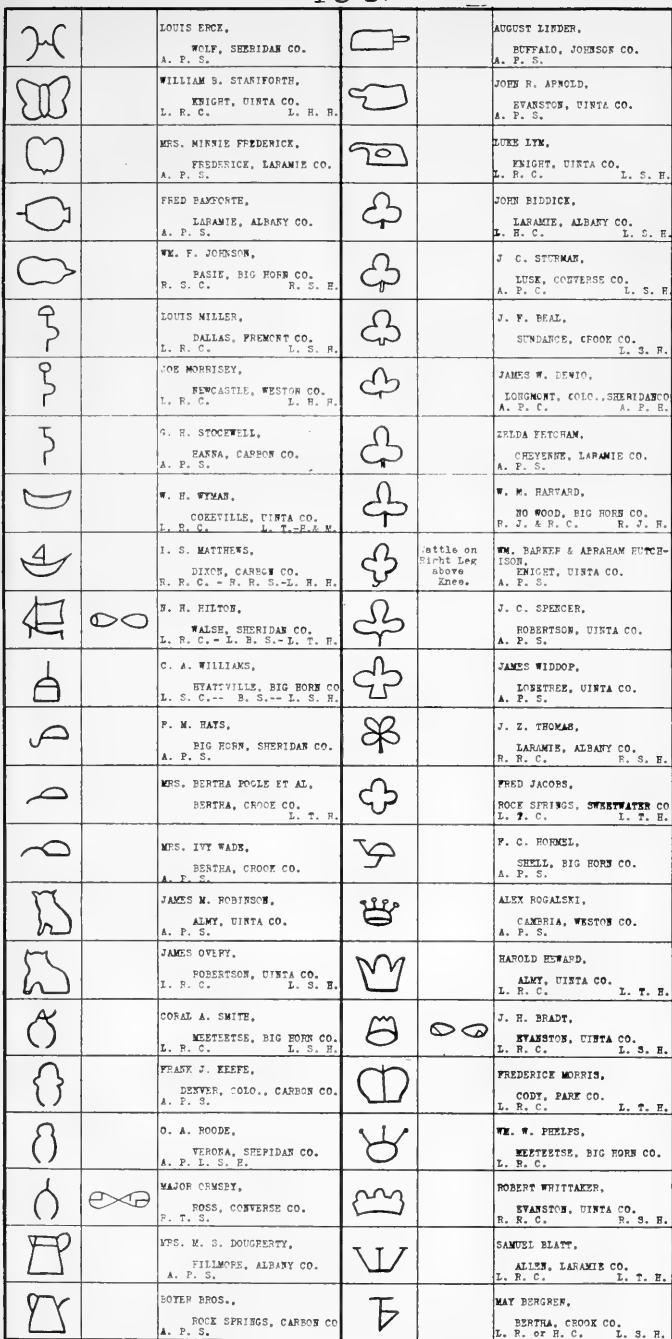 LOUIS ERCK,
WOLF, SHERIDAN CO.
A. P. S.
WILLIAM B. STANIFORTH,
KNIGHT, UINTA CO.
L. R. C. L. H. H.
MRS. MINNIE FREDERICK,
FREDERICK, LARAMIE CO.
A. P. S.
FRED BAMFORTH,
LARAMIE, ALBANY CO.
A. P. S.
WM. F. JOHNSON,
BASIN, BIG HORN CO.
R. S. C. R. S. H.
LOUIS MILLER,
DALLAS, FREMONT CO.
L. R. C. L. S. H.
JOE MORRISEY,
NEWCASTLE, WESTON CO.
L. R. C. L. H. H.
G. H. STOCKWELL,
HANNA, CARBON CO.
A. P. S.
W. H. WYMAN,
COKEVILLE, UINTA CO.
L. R. C. L. T.-H.& M.
I. S. MATTHEWS,
DIXON, CARBON CO.
R. R. C. - R. R. S.-L. H. H.
N. H. HILTON,
WALSH, SHERIDAN CO.
L. R. C.- L. B. S.- L. T. H.
C. A. WILLIAMS,
HYATTVILLE, BIG HORN CO
L. S. C.-- B. S.-- L. S. H.
F. M. HAYS,
BIG HORN, SHERIDAN CO.
A. P. S.
MRS. BERTHA POGUE ET AL,
BERTHA, CROOK CO.
L. T. H.
MRS. IVY WADE,
BERTHA, CROOK CO.
A. P. S.
JAMES M. ROBINSON,
ALMY, UINTA CO.
A. P. S.
JAMES OVERY,
ROBERTSON, UINTA CO.
L. R. C. L. S. H.
CORAL A. SMITH,
MEETEETSE, BIG HORN CO.
L. R. C. L. S. H.
FRANK J. KEEFE,
DENVER, COLO., CARBON CO.
A. P. S.
O. A. ROODE,
VERONA, SHERIDAN CO.
A. P. L. S. H.
MAJOR ORMSBY,
ROSS, CONVERSE CO.
R. T. S.
MRS. M. S. DOUGHERTY,
FILLMORE, ALBANY CO.
A. P. S.
BOYER BROS.,
ROCK SPRINGS, CARBON CO
A. P. S.
AUGUST LINDER,
BUFFALO, JOHNSON CO.
A. P. S.
JOHN R. ARNOLD,
EVANSTON, UINTA CO.
A. P. S.
LUKE LYM,
KNIGHT, UINTA CO.
L. R. C. L. S. H.
JOHN BIDDICK,
LARAMIE, ALBANY CO.
L. H. C. L. S. H.
J C. STURMAN,
LUSK, CONVERSE CO.
A. P. C. L. S. H.
J. F. BEAL,
SUNDANCE, CROOK CO.
L. S. H.
JAMES W. DENIO,
LONGMONT, COLO.,SHERIDANCO
A. P. C. A. P. H.
ZELDA KETCHAM,
CHEYENNE, LARAMIE CO.
A. P. S.
W. M. HARVARD,
NO WOOD, BIG HORN CO.
R. J. & R. C. R. J. H.
Cattle on
Right Leg
above
Knee.
WM. BARKER & ABRAHAM HUTCH-
ISON,
KNIGHT, UINTA CO.
A. P. S.
J. C. SPENCER,
ROBERTSON, UINTA CO.
A. P. S.
JAMES WIDDOP,
LONETREE, UINTA CO.
A. P. S.
J. Z. THOMAS,
LARAMIE, ALBANY CO.
R. R. C. R. S. H.
FRED JACOBS,
ROCK SPRINGS, SWEETWATER CO
L. C. L. T. H.
F. C. HORMEL,
SHELL, BIG HORN CO.
A. P. S.
ALEX ROGALSKI,
CAMBRIA, WESTON CO.
A. P. S.
HAROLD HEWARD,
ALMY, UINTA CO.
L. R. C. L. T. H.
J. H. BRADT,
EVANSTON, UINTA CO.
L. R. C. L. S. H.
FREDERICK MORRIS,
CODY, PARK CO.
L. R. C. L. T. H.
WM. W. PHELPS,
MEETEETSE, BIG HORN CO.
L. R. C.
ROBERT WHITTAKER,
EVANSTON, UINTA CO.
R. R. C. R. S. H.
SAMUEL BLATT,
ALLEN, LARAMIE CO.
L. R. C. L. T. H.
MAY BERGREN,
BERTHA, CROOK CO.
L. R. or H. C. L. S. H.